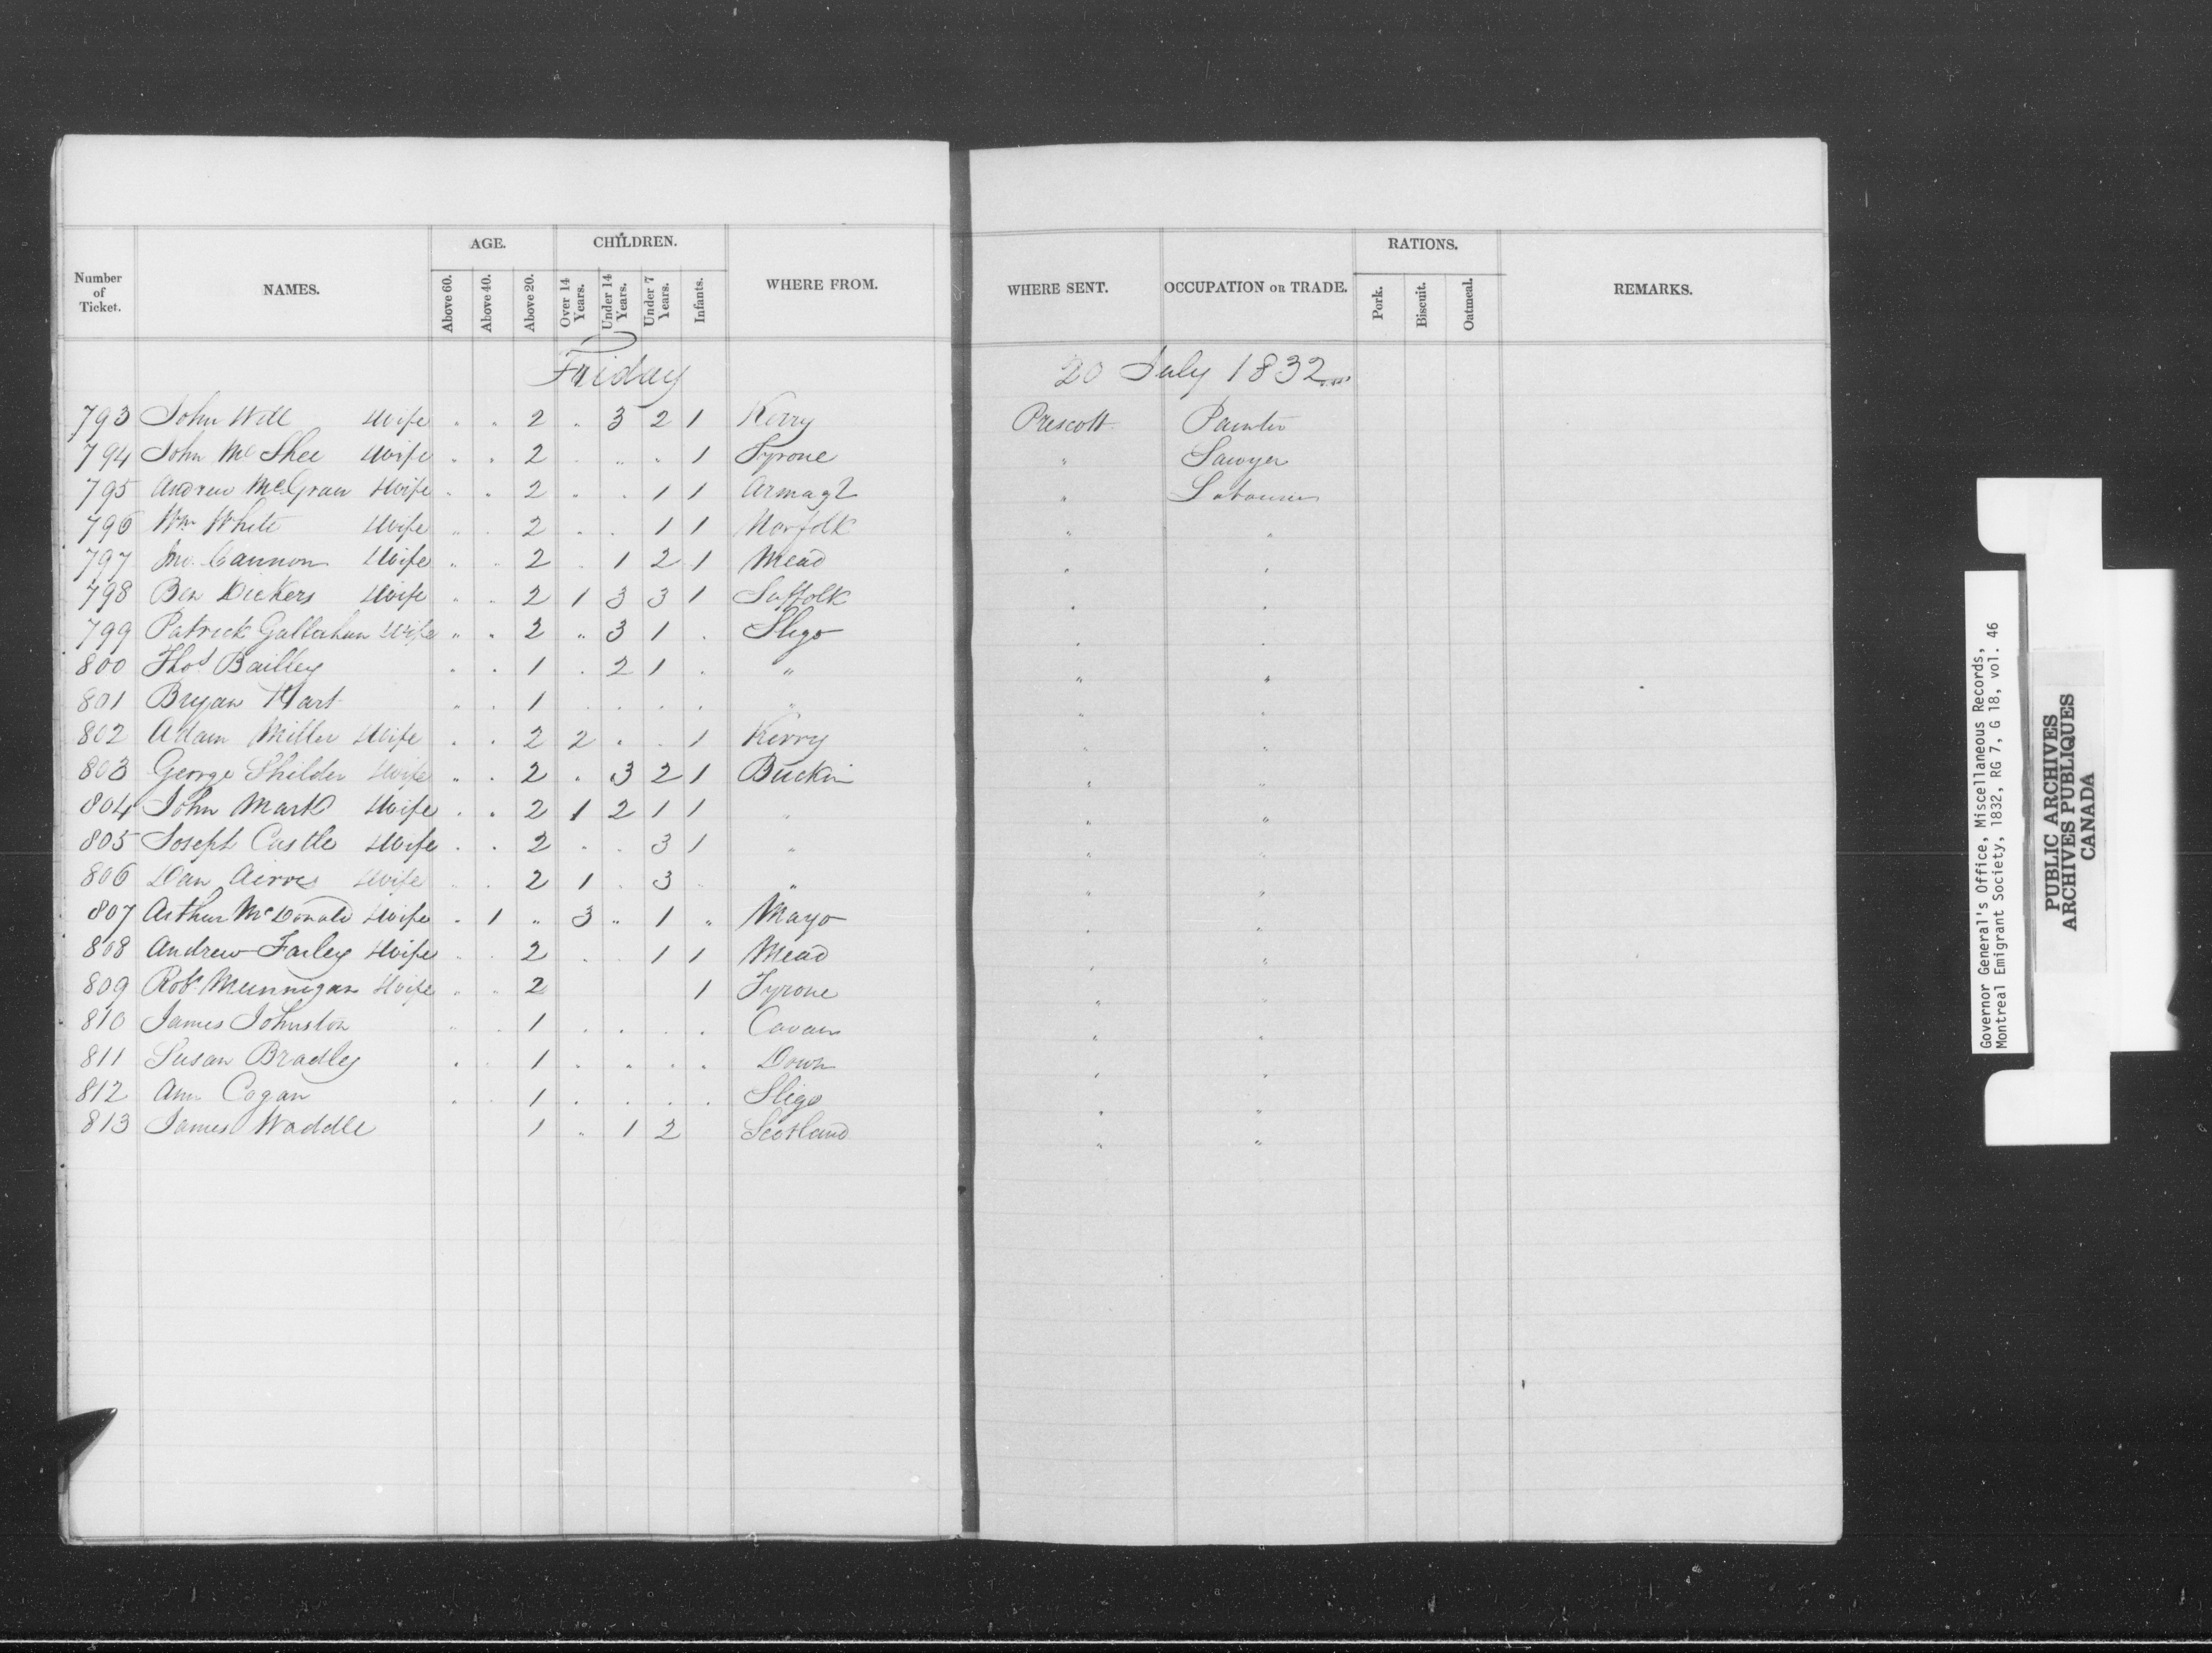 AGE. CHILDREN. RATIONS.
Number of Ticket. NAMES. Above 60. Above 40. Above 20. Over 14 Years. Under 14 Years. Under 7 Years. Infants. WHERE FROM. WHERE SENT. OCCUPATION OR TRADE. Pork. Biscuit. Oatmeal. REMARKS.
Friday 20 July 1832
793 John Will Wife " " 2 " 3 2 1 Kerry Prescott Painter
794 John McShee Wife " " 2 " " " 1 Tyrone " Sawyer
795 Andrew McGraw Wife " " 2 " " 1 1 Armagh " Labourer
796 Wm White Wife " " 2 " " 1 1 Norfolk " "
797 Jno. Cannon Wife " " 2 " 1 2 1 Mead " "
798 Ben Dickers Wife " " 2 1 3 3 1 Suffolk " "
799 Patrick Gallahan Wife " " 2 " 3 1 " Sligo " "
800 Thos Bailley " " 1 " 2 1 " " " "
801 Bryan Hart " " 1 " " " " " " "
802 Adam Miller Wife " " 2 2 " " 1 Kerry " "
803 George Shilder Wife " " 2 " 3 2 1 " "
804 John Mark Wife " " 2 1 2 1 1 " " "
805 Joseph Castle Wife " " 2 " " 3 1 " " "
806 Dan Wife " " 2 1 " 3 " " " "
807 Arthur McDonald Wife " 1 " 3 " 1 " Mayo " "
808 Andrew Farley Wife " " 2 " " 1 1 Mead " "
809 Robt Munnigan Wife " " 2 1 Tyrone " "
810 James Johnston " " 1 " " " " Cavan " "
811 Susan Bradley " " 1 " " " " Down " "
812 Ann Cogan " " 1 " " " " Sligo " "
813 James Waddle 1 " 1 2 Scotland " "
Governor General's Office, Miscellaneous Records,
Montreal Emigrant Society, 1832, RG 7, G 18, vol. 46
PUBLIC ARCHIVES
ARCHIVES PUBLIQUES
CANADA